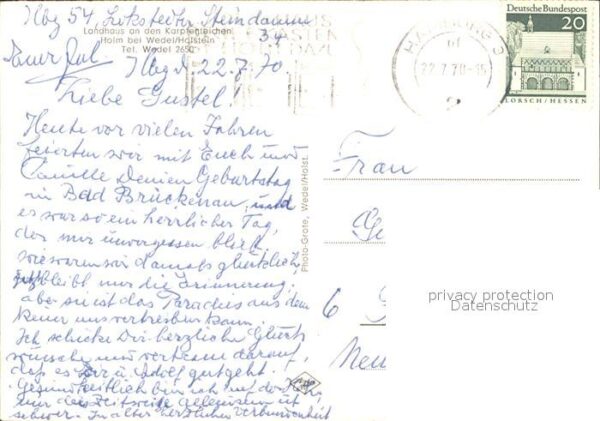 Hbg 54, Lokstedter Steindamm
34
Landhaus an den Karpfenteichen
Holm bei Wedel/Holstein
Tel. Wedel 2650
Hbg d. 22.7.70
Liebe Gustel!
Heute vor vielen Jahren
feierten wir mit Euch und
Familie Deinen Geburtstag
in Bad Brückenau, und
es war so ein herrlicher Tag,
der mir unvergessen blieb.
wie waren wir damals glücklich
jetzt bleibt nur die Erinnerung,
aber sie ist das Paradies aus dem
keiner uns vertreiben kann.
Ich schicke Dir herzliche Glück
wünsche und vertraue darauf,
daß es Dir u. Adolf gut geht.
Gesundheitlich bin ich
nur das zeitweise Alleinsein ist
schwer. In alter herzlicher Verbundenheit
Photo-Grote, Wedel/Holst.
HAMBURG
22.7.70
2
Deutsche Bundespost
20
LORSCH/HESSEN
Frau
Ge
6
Neu
privacy protection
Datenschutz